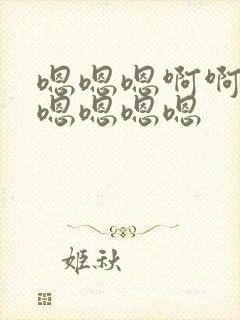 嗯嗯嗯啊啊
嗯嗯嗯嗯
姬秋